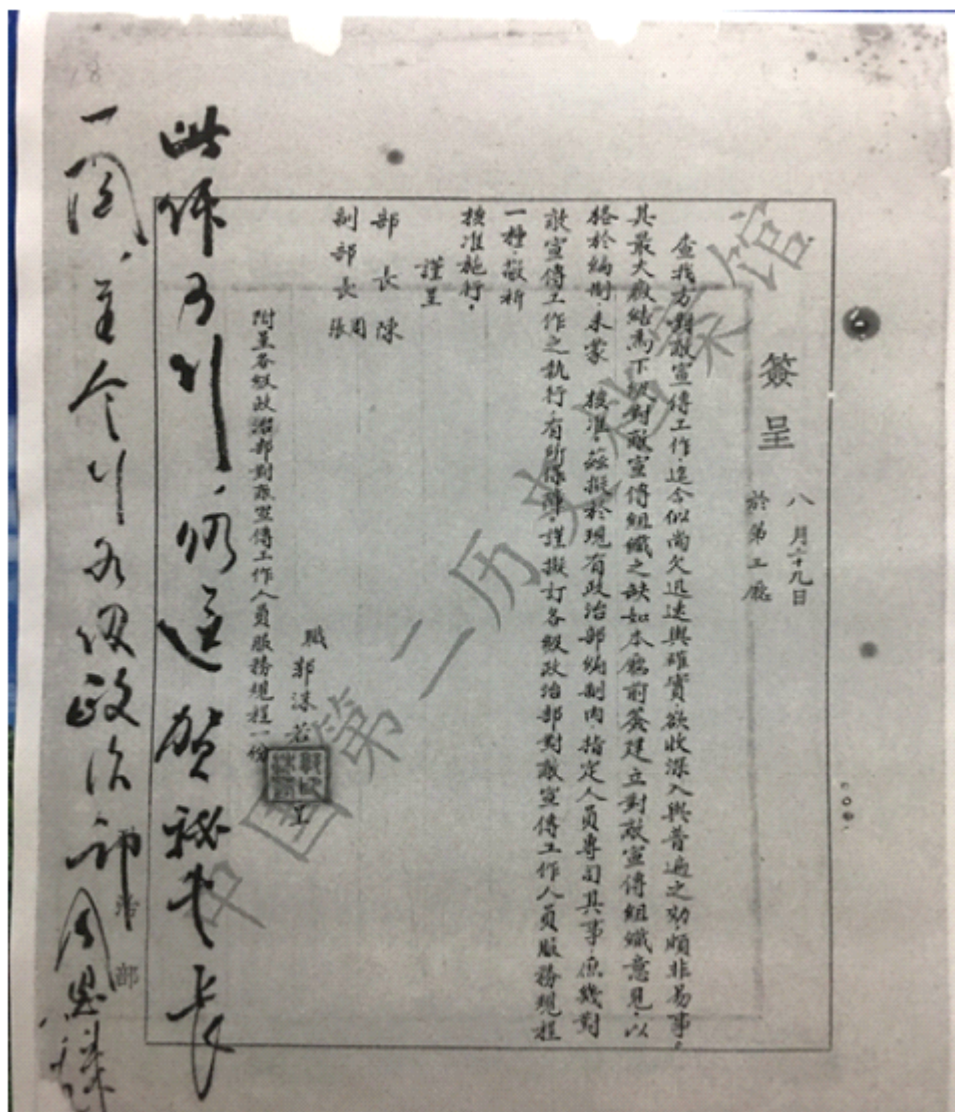 簽呈
八月十九日
於第工廳
查我方對敵宣傳工作迄今似尚欠迅速與確實欲收深入與普遍之功頗非易事
其最大癥結為下級對敵宣傳組織之缺如本廳前簽建立對敵宣傳組織意見以
格於編制未蒙 核准茲擬於現有政治部編制內指定人員專司其事庶幾對
敵宣傳工作之執行有所保障謹擬訂各級政治部對敵宣傳工作人員服務規程
一種敬祈
核准施行
謹呈
部長陳
副部長周
張
職郭沫若呈
附呈各級政治部對敵宣傳工作人員服務規程一份
此件可行、仍送賀秘书长
一阅、並令行各级政治部
周恩来
治部
中国第二历史档案馆